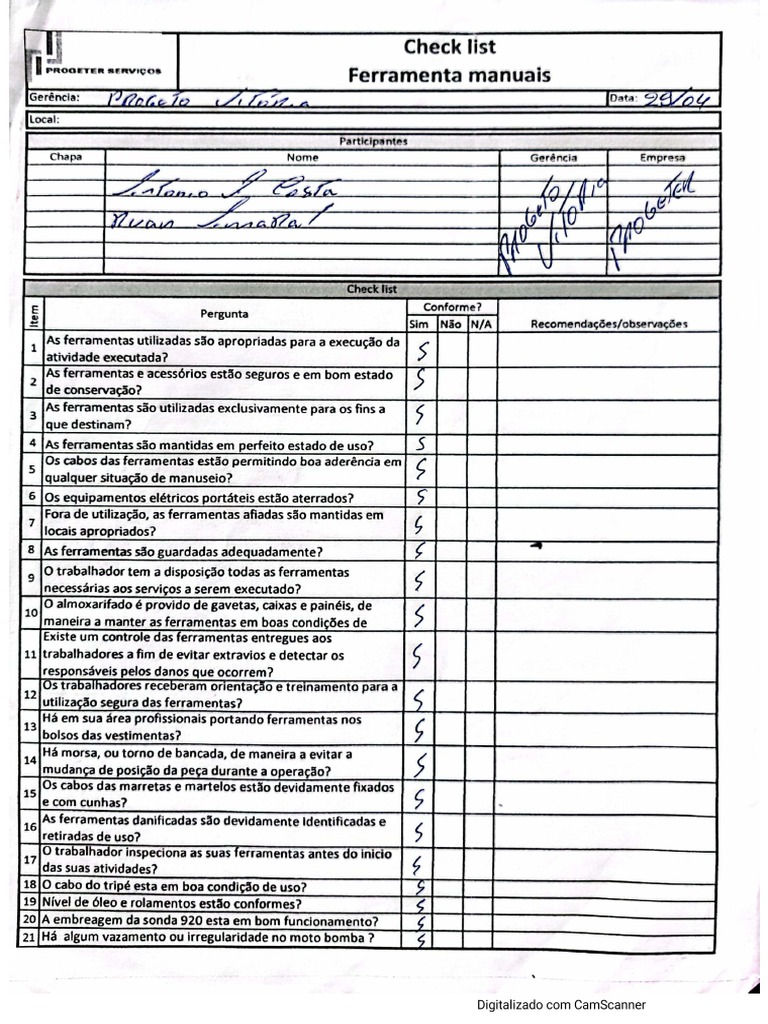 PROGETER SERVIÇOS
Check list
Ferramenta manuais
Gerência: PROGETO VITÓRIA
Data: 29/04
Local:
Participantes
Chapa Nome Gerência Empresa
Antonio Costa PROGETO VITÓRIA PROGETER
Ruan
Check list
Item Pergunta Conforme?
Sim Não N/A Recomendações/observações
1 As ferramentas utilizadas são apropriadas para a execução da
atividade executada? S
2 As ferramentas e acessórios estão seguros e em bom estado
de conservação? S
3 As ferramentas são utilizadas exclusivamente para os fins a
que destinam? S
4 As ferramentas são mantidas em perfeito estado de uso? S
5 Os cabos das ferramentas estão permitindo boa aderência em
qualquer situação de manuseio? S
6 Os equipamentos elétricos portáteis estão aterrados? S
7 Fora de utilização, as ferramentas afiadas são mantidas em
locais apropriados? S
8 As ferramentas são guardadas adequadamente? S
9 O trabalhador tem a disposição todas as ferramentas
necessárias aos serviços a serem executado? S
10 O almoxarifado é provido de gavetas, caixas e painéis, de
maneira a manter as ferramentas em boas condições de S
11 Existe um controle das ferramentas entregues aos
trabalhadores a fim de evitar extravios e detectar os
responsáveis pelos danos que ocorrem? S
12 Os trabalhadores receberam orientação e treinamento para a
utilização segura das ferramentas? S
13 Há em sua área profissionais portando ferramentas nos
bolsos das vestimentas? S
14 Há morsa, ou torno de bancada, de maneira a evitar a
mudança de posição da peça durante a operação? S
15 Os cabos das marretas e martelos estão devidamente fixados
e com cunhas? S
16 As ferramentas danificadas são devidamente Identificadas e
retiradas de uso? S
17 O trabalhador inspeciona as suas ferramentas antes do inicio
das suas atividades? S
18 O cabo do tripé esta em boa condição de uso? S
19 Nível de óleo e rolamentos estão conformes? S
20 A embreagem da sonda 920 esta em bom funcionamento? S
21 Há algum vazamento ou irregularidade no moto bomba ? S
Digitalizado com CamScanner